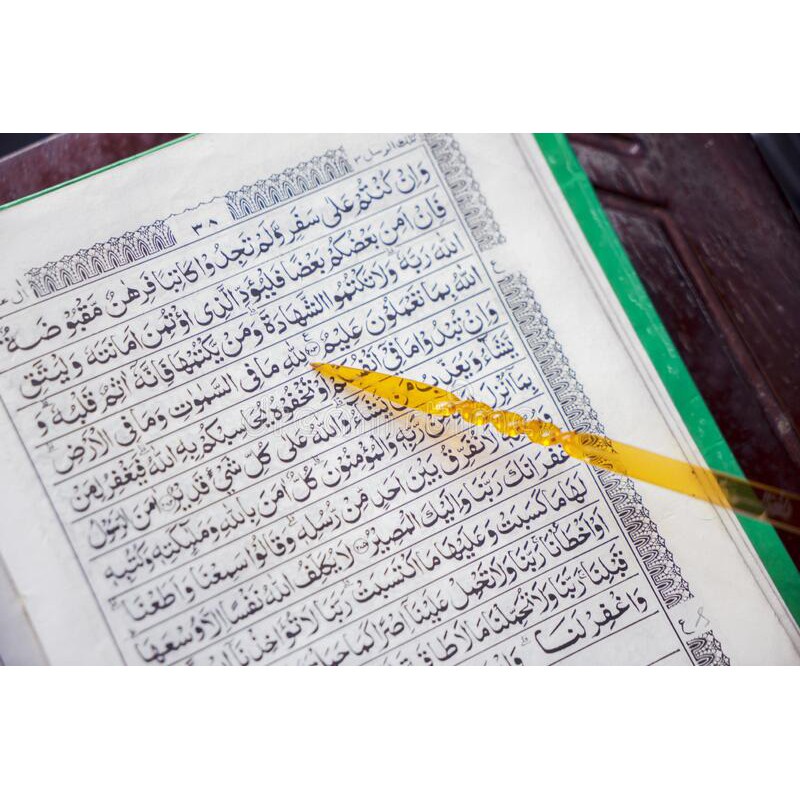 تلك الرسل ٣
٣٠٨
وَاِنْ كُنْتُمْ عَلٰى سَفَرٍ وَّلَمْ تَجِدُوْا كَاتِبًا فَرِهٰنٌ مَّقْبُوْضَةٌ
فَاِنْ اَمِنَ بَعْضُكُمْ بَعْضًا فَلْيُؤَدِّ الَّذِى اؤْتُمِنَ اَمَانَتَهٗ وَلْيَتَّقِ
اللّٰهَ رَبَّهٗ وَلَا تَكْتُمُوا الشَّهَادَةَ وَمَنْ يَّكْتُمْهَا فَاِنَّهٗ اٰثِمٌ قَلْبُهٗ وَ
اللّٰهُ بِمَا تَعْمَلُوْنَ عَلِيْمٌ لِلّٰهِ مَا فِى السَّمٰوٰتِ وَمَا فِى الْاَرْضِ
وَاِنْ تُبْدُوْا مَا فِىْ اَنْفُسِكُمْ اَوْ تُخْفُوْهُ يُحَاسِبْكُمْ بِهِ اللّٰهُ فَيَغْفِرُ لِمَنْ
يَّشَآءُ وَيُعَذِّبُ مَنْ يَّشَآءُ وَاللّٰهُ عَلٰى كُلِّ شَىْءٍ قَدِيْرٌ اٰمَنَ الرَّسُوْلُ
بِمَآ اُنْزِلَ رَّبِّهٖ وَالْمُؤْمِنُوْنَ كُلٌّ اٰمَنَ بِاللّٰهِ وَمَلٰٓئِكَتِهٖ وَكُتُبِهٖ
نُفَرِّقُ بَيْنَ اَحَدٍ مِّنْ رُّسُلِهٖ وَقَالُوْا سَمِعْنَا وَاَطَعْنَا
غُفْرَانَكَ رَبَّنَا وَاِلَيْكَ الْمَصِيْرُ لَا يُكَلِّفُ اللّٰهُ نَفْسًا اِلَّا وُسْعَهَا
لَهَا مَا كَسَبَتْ وَعَلَيْهَا مَا اكْتَسَبَتْ رَبَّنَا لَا تُؤَاخِذْنَآ
اَوْ اَخْطَاْنَا رَبَّنَا وَلَا تَحْمِلْ عَلَيْنَآ اِصْرًا كَمَا
قَبْلِنَا رَبَّنَا وَلَا تُحَمِّلْنَا مَا لَا طَاقَةَ
وَاغْفِرْ لَنَا